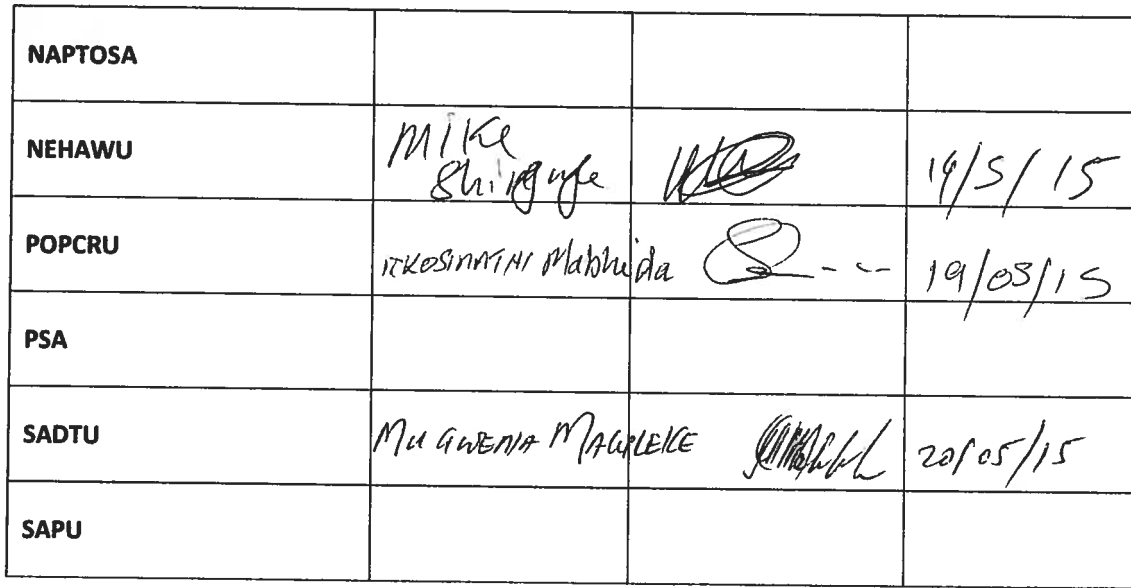 NAPTOSA
NEHAWU Mike Shingange 19/5/15
POPCRU Nkosinathi Mabhida 19/05/15
PSA
SADTU Mugwena Maluleke 20/05/15
SAPU